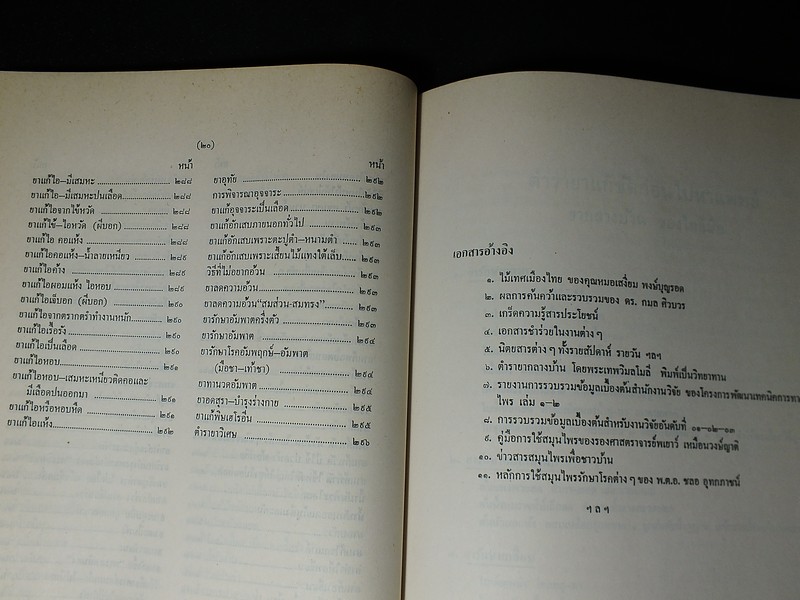 (๒๐)
หน้า
ยาแก้ไอ–มีเสมหะ ๒๘๘
ยาแก้ไอ–มีเสมหะปนเลือด ๒๘๘
ยาแก้ไอจากไข้หวัด ๒๘๘
ยาแก้ไข้–ไอหวัด (ผีบอก) ๒๘๘
ยาแก้ไอ คอแห้ง ๒๘๘
ยาแก้ไอคอแห้ง–น้ำลายเหนียว ๒๘๙
ยาแก้ไอค้าง ๒๘๙
ยาแก้ไอผอมแห้ง ไอหอบ ๒๘๙
ยาแก้ไอเจ็บอก (ผีบอก) ๒๙๐
ยาแก้ไอจากตรากตรำทำงานหนัก ๒๙๐
ยาแก้ไอเรื้อรัง ๒๙๐
ยาแก้ไอเป็นเลือด ๒๙๐
ยาแก้ไอหอบ ๒๙๑
ยาแก้ไอหอบ–เสมหะเหนียวติดคอและ
มีเลือดปนออกมา ๒๙๑
ยาแก้ไอหรือหอบหืด ๒๙๑
ยาแก้ไอแห้ง ๒๙๒
หน้า
ยาอุทัย ๒๙๒
การพิจารณาอุจจาระ ๒๙๒
ยาแก้อุจจาระเป็นเลือด ๒๙๒
ยาแก้อักเสบภายนอกทั่วไป ๒๙๓
ยาแก้อักเสบเพราะตะปูตำ–หนามตำ ๒๙๓
ยาแก้อักเสบเพราะเสี้ยนไม้แทงใต้เล็บ ๒๙๓
วิธีที่ไม่อยากอ้วน ๒๙๓
ยาลดความอ้วน ๒๙๓
ยาลดความอ้วน“สมส่วน–สมทรง” ๒๙๓
ยารักษาอัมพาตครึ่งตัว ๒๙๓
ยารักษาอัมพาต ๒๙๔
ยารักษาโรคอัมพฤกษ์–อัมพาต
(มือชา–เท้าชา) ๒๙๔
ยาทานวดอัมพาต ๒๙๔
ยาอดสุรา–บำรุงร่างกาย ๒๙๕
ยาแก้พิษเฮโรอีน ๒๙๕
ตำรายาวิเศษ ๒๙๖
เอกสารอ้างอิง
๑. ไม้เทศเมืองไทย ของคุณหมอเสงี่ยม พงษ์บุญรอด
๒. ผลการค้นคว้าและรวบรวมของ ดร. กมล ศิวบวร
๓. เกร็ดความรู้สารประโยชน์
๔. เอกสารชำร่วยในงานต่าง ๆ
๕. นิตยสารต่าง ๆ ทั้งรายสัปดาห์ รายวัน ฯลฯ
๖. ตำรายากลางบ้าน โดยพระเทพวิมลโมลี พิมพ์เป็นวิทยาทาน
๗. รายงานการรวบรวมข้อมูลเบื้องต้นสำนักงานวิจัย ของโครงการพัฒนาเทคนิคการทา
ไพร เล่ม ๑–๒
๘. การรวบรวมข้อมูลเบื้องต้นสำหรับงานวิจัยอันดับที่ ๐๑–๐๒–๐๓
๙. คู่มือการใช้สมุนไพรของรองศาสตราจารย์พเยาว์ เหมือนวงษ์ญาติ
๑๐. ข่าวสารสมุนไพรเพื่อชาวบ้าน
๑๑. หลักการใช้สมุนไพรรักษาโรคต่าง ๆ ของ พ.ต.อ. ชลอ อุทกภาชน์
ฯ ล ฯ